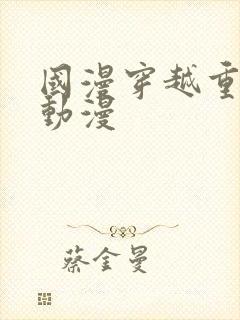 國漫穿越重
動漫
蔡金曼